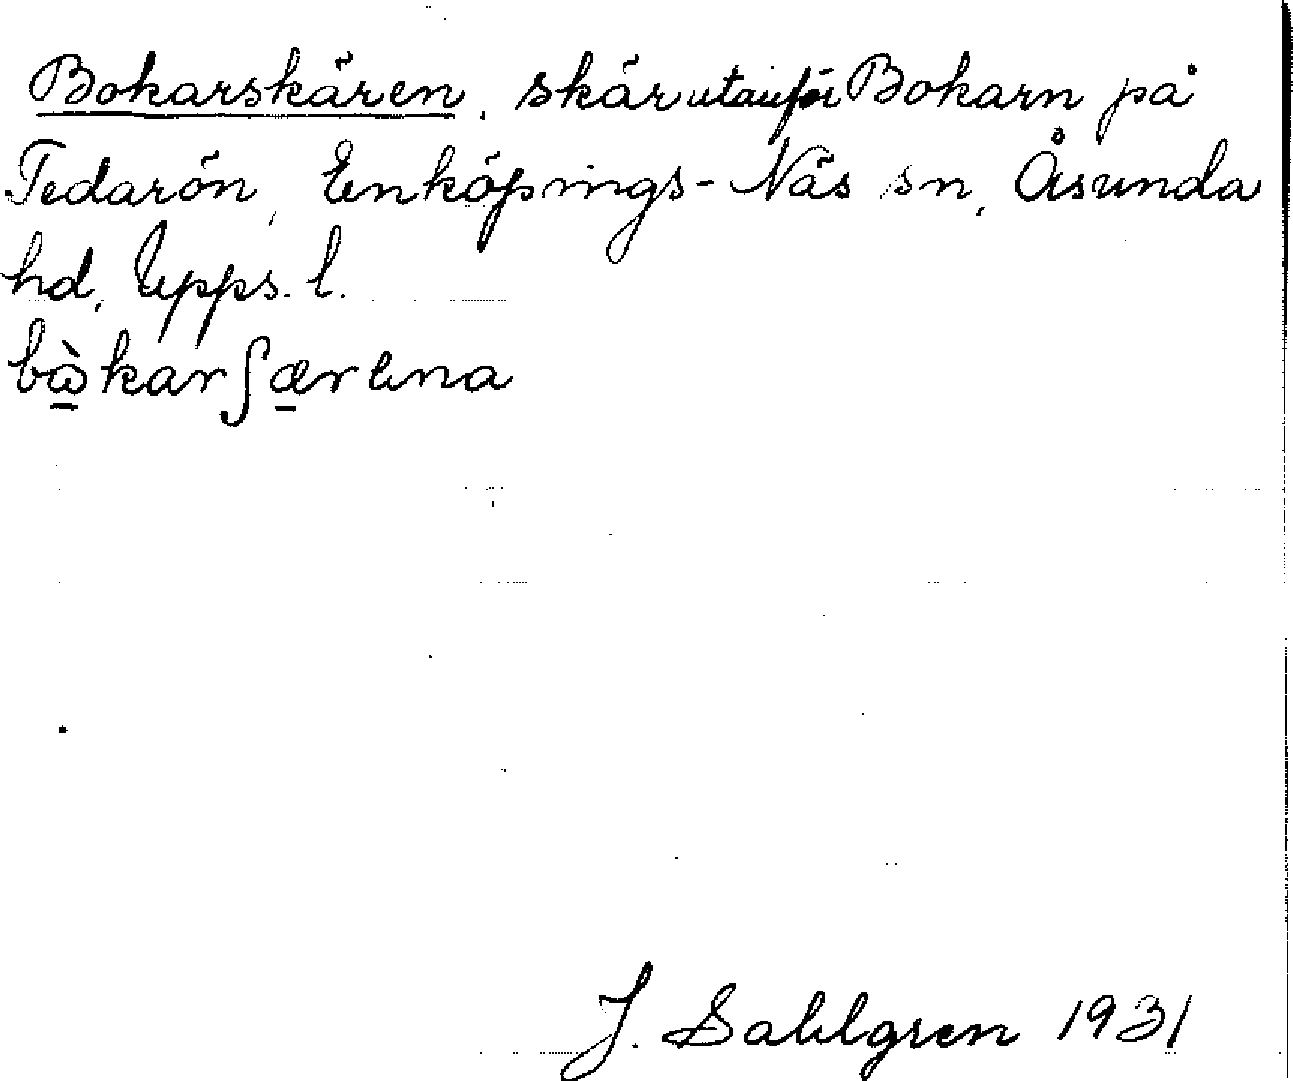 Bokarskären, skär utanför Bokarn på
Tedarön, Enköpings-Näs sn, Åsunda
hd, Upps. l.
bòkarʃærena
J. Sahlgren 1931